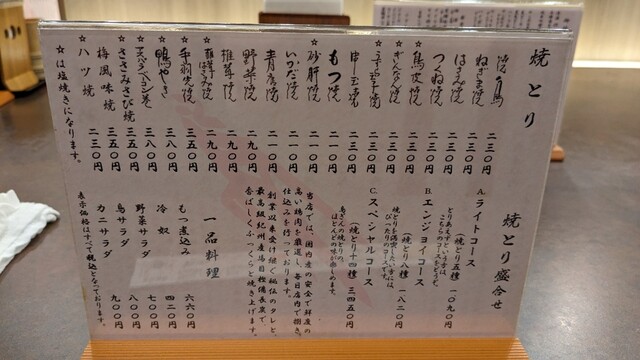 焼とり
焼鳥 二三〇円
ねぎま焼 二三〇円
はさみ焼 二三〇円
つくね焼 二三〇円
鳥皮焼 二三〇円
ぎんなん焼 二三〇円
もつ焼 二一〇円
砂肝焼 二一〇円
いかだ焼 二一〇円
青唐焼 二一〇円
野菜焼 二九〇円
椎茸焼 二九〇円
☆手羽先焼 三五〇円
☆鴨やき 三八〇円
☆ささみさび焼 三五〇円
☆梅風味焼 三五〇円
☆ハツ焼 二三〇円
☆は塩焼きになります。
焼とり盛合せ
A.ライトコース
(焼とり五種 一〇九〇円)
とりあえずという方は、
こちらのコースをどうぞ。
B.エンジョイコース
(焼とり八種 一八二〇円)
焼とりを満喫したい方には
ぴったりのコースです。
C.スペシャルコース
(焼とり十四種 三四五〇円)
鳥ぎんの焼とりの、
ほとんどの味が楽しめます。
当店では、国内産の安全で鮮度の
高い鶏肉を厳選し、毎日店内で捌き、
仕込みを行っております。
創業以来受け継ぐ秘伝のタレと、
最高級紀州産馬目樫備長炭で、
香ばしくふっくらと焼き上げます。
一品料理
もつ煮込み 六六〇円
冷奴 四二〇円
野菜サラダ 七〇〇円
鳥サラダ 八〇〇円
カニサラダ 九〇〇円
表示価格はすべて税込となっております。